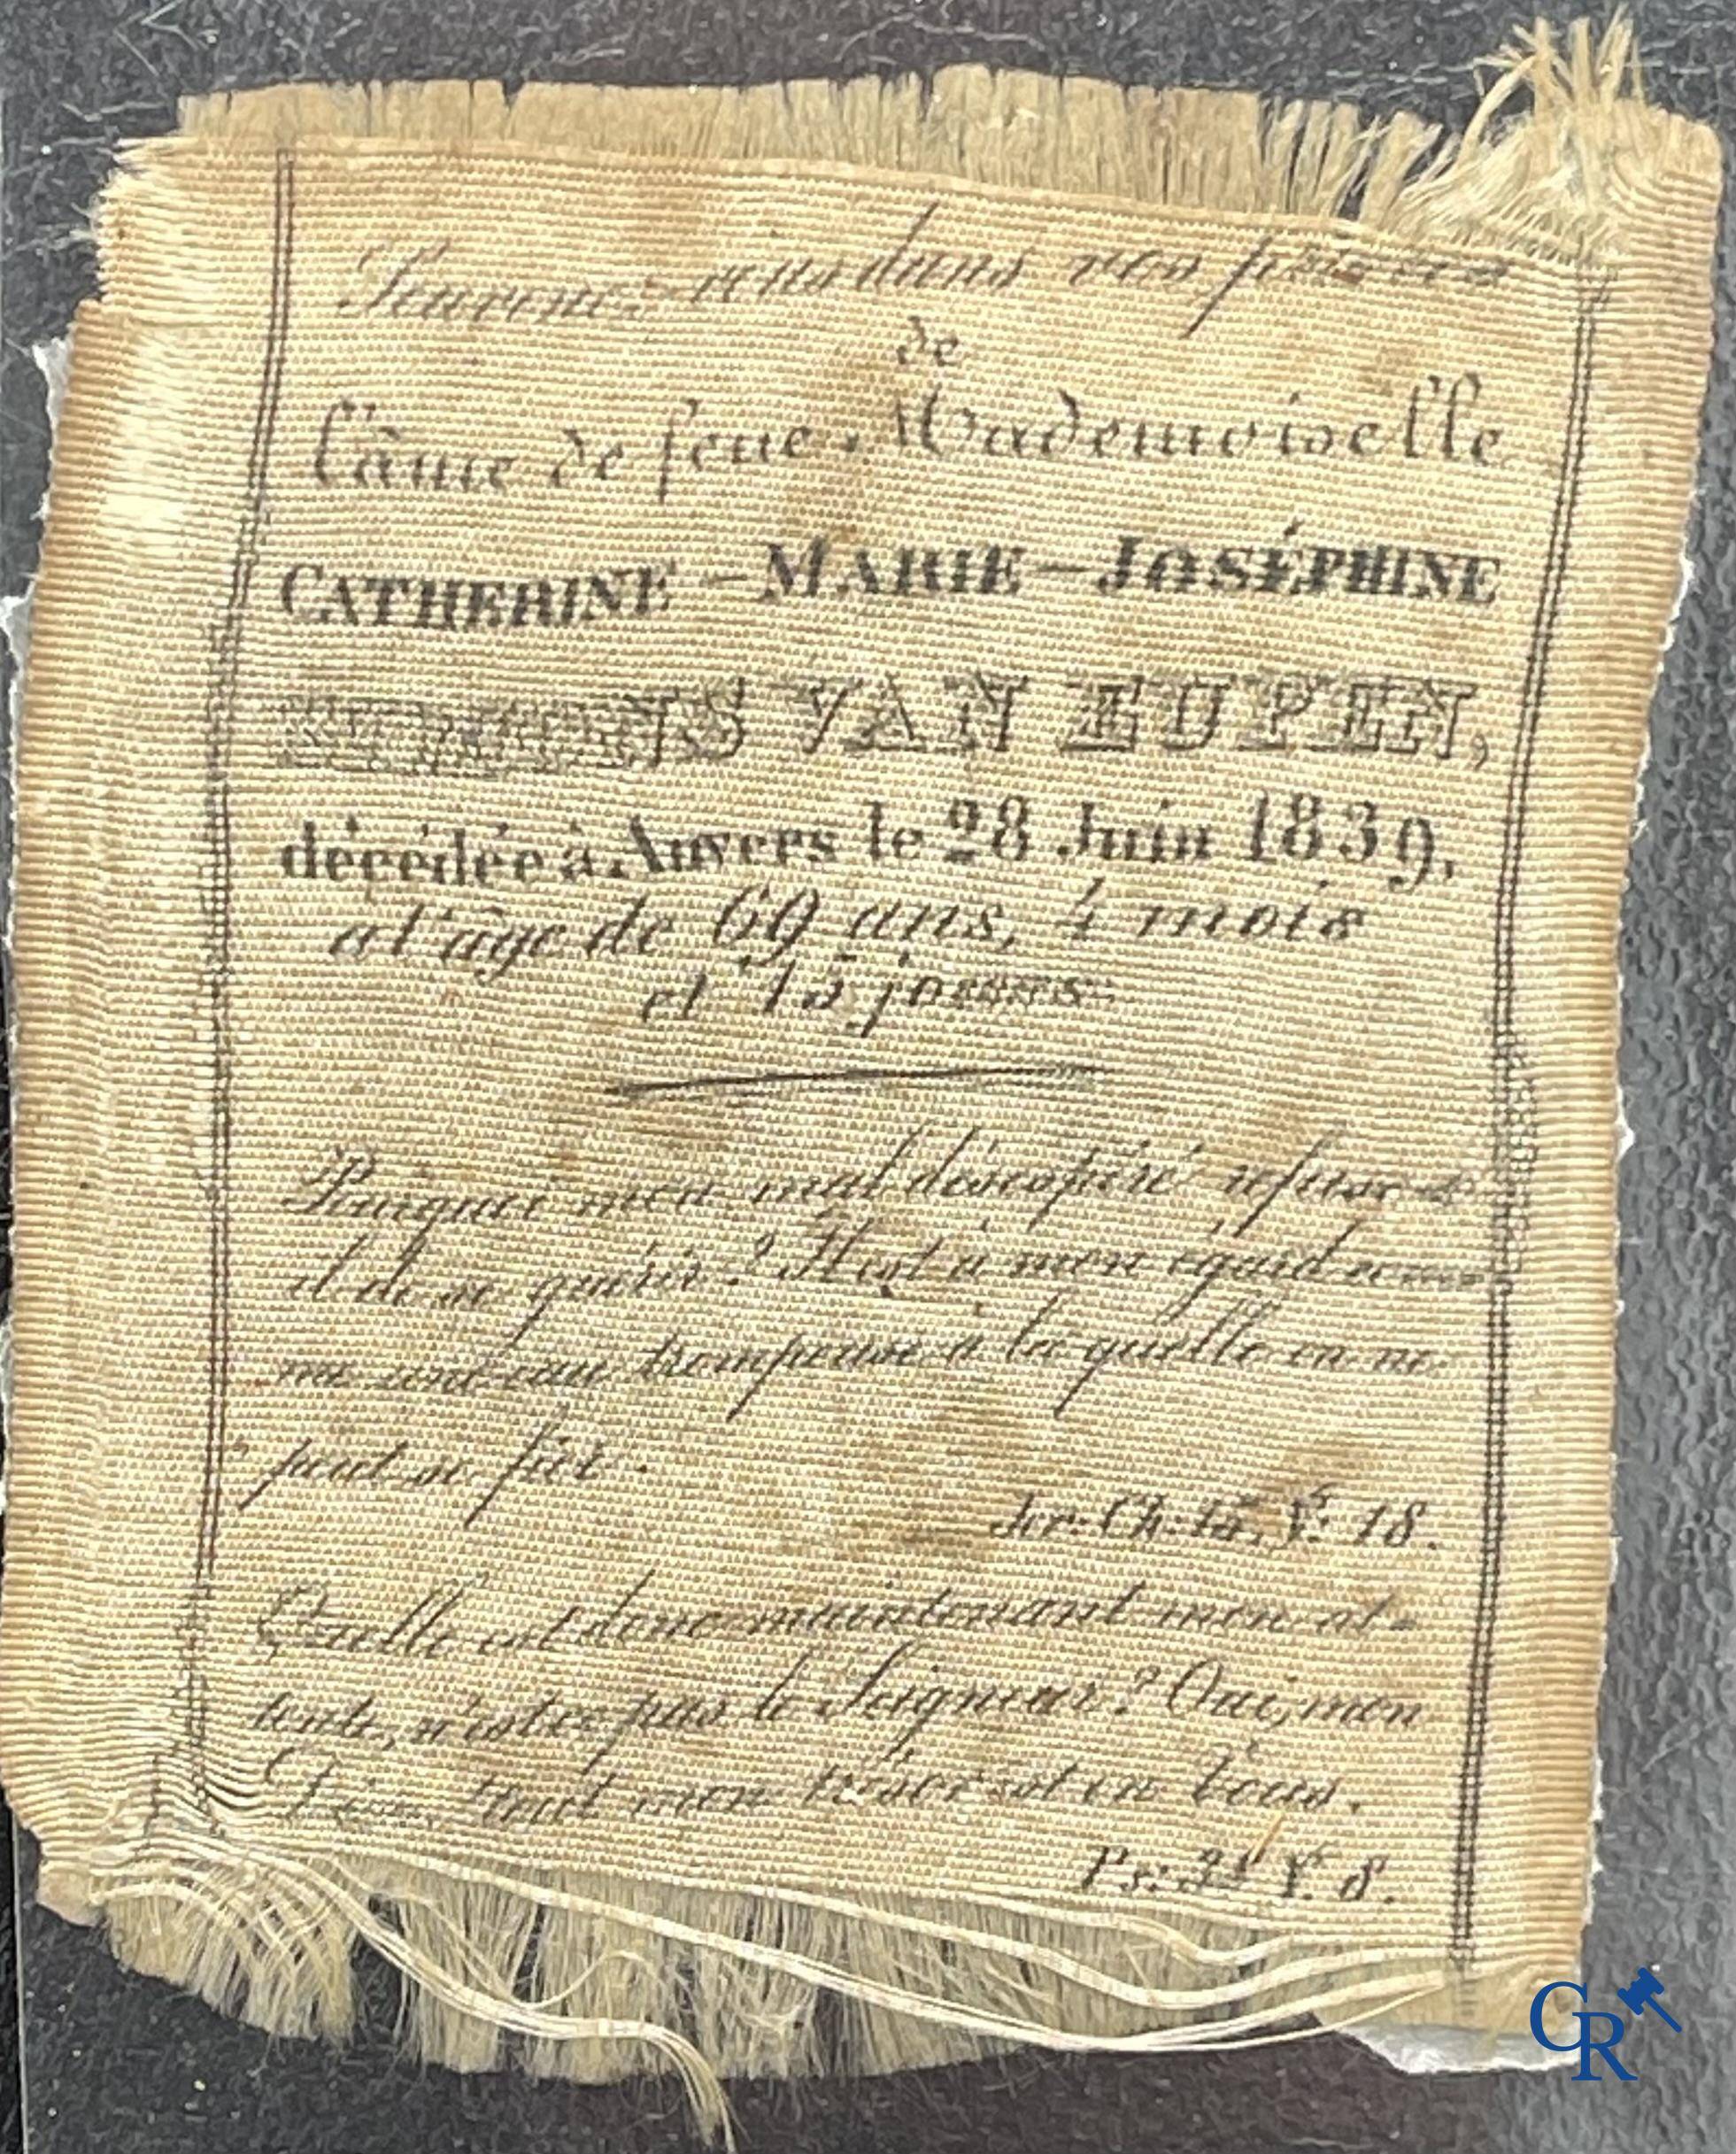 Souvenez-vous dans vos prières
de
l'âme de feue Mademoiselle
CATHERINE - MARIE - JOSÉPHINE
VAN EUPEN,
décédée à Anvers le 28 Juin 1839,
a l'âge de 69 ans, 4 mois
et 15 jours.
Pourquoi mon mal désespéré refuse-t-
il de se guérir? Il est à mon égard com-
me une eau trompeuse à la quelle on ne
peut se fier.
Jer: Ch: 15, V: 18.
Quelle est donc maintenant mon at-
tente, n'est ce pas le Seigneur? Oui, mon
Dieu, tout mon trésor est en Vous.
Ps: V. 8.
CR